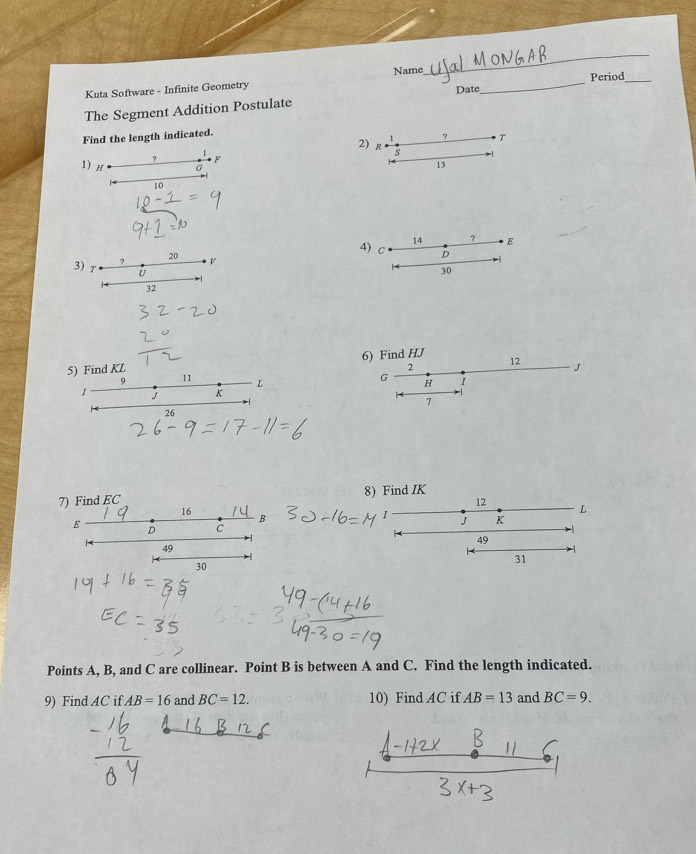 Name Ujal MONGAR
Kuta Software - Infinite Geometry
Date Period
The Segment Addition Postulate
Find the length indicated.
1) H ? G 1 F
10
10 - 1 = 9
9+1=10
2) R 1 S ? T
13
3) T ? U 20 V
32
32-20
20
12
4) C 14 D ? E
30
5) Find KL
9 11
I J K L
26
26-9=17-11=6
6) Find HJ
2 12
G H I J
7
7) Find EC
19 16 14
E D C B
30-16=14
49
30
19+16=35
EC=35
49-(14+16
49-30=19
8) Find IK
12
I J K L
49
31
Points A, B, and C are collinear. Point B is between A and C. Find the length indicated.
9) Find AC if AB = 16 and BC = 12.
-16
12
04
A 16 B 12 C
10) Find AC if AB = 13 and BC = 9.
A -1+2x B 11 C
3x+3